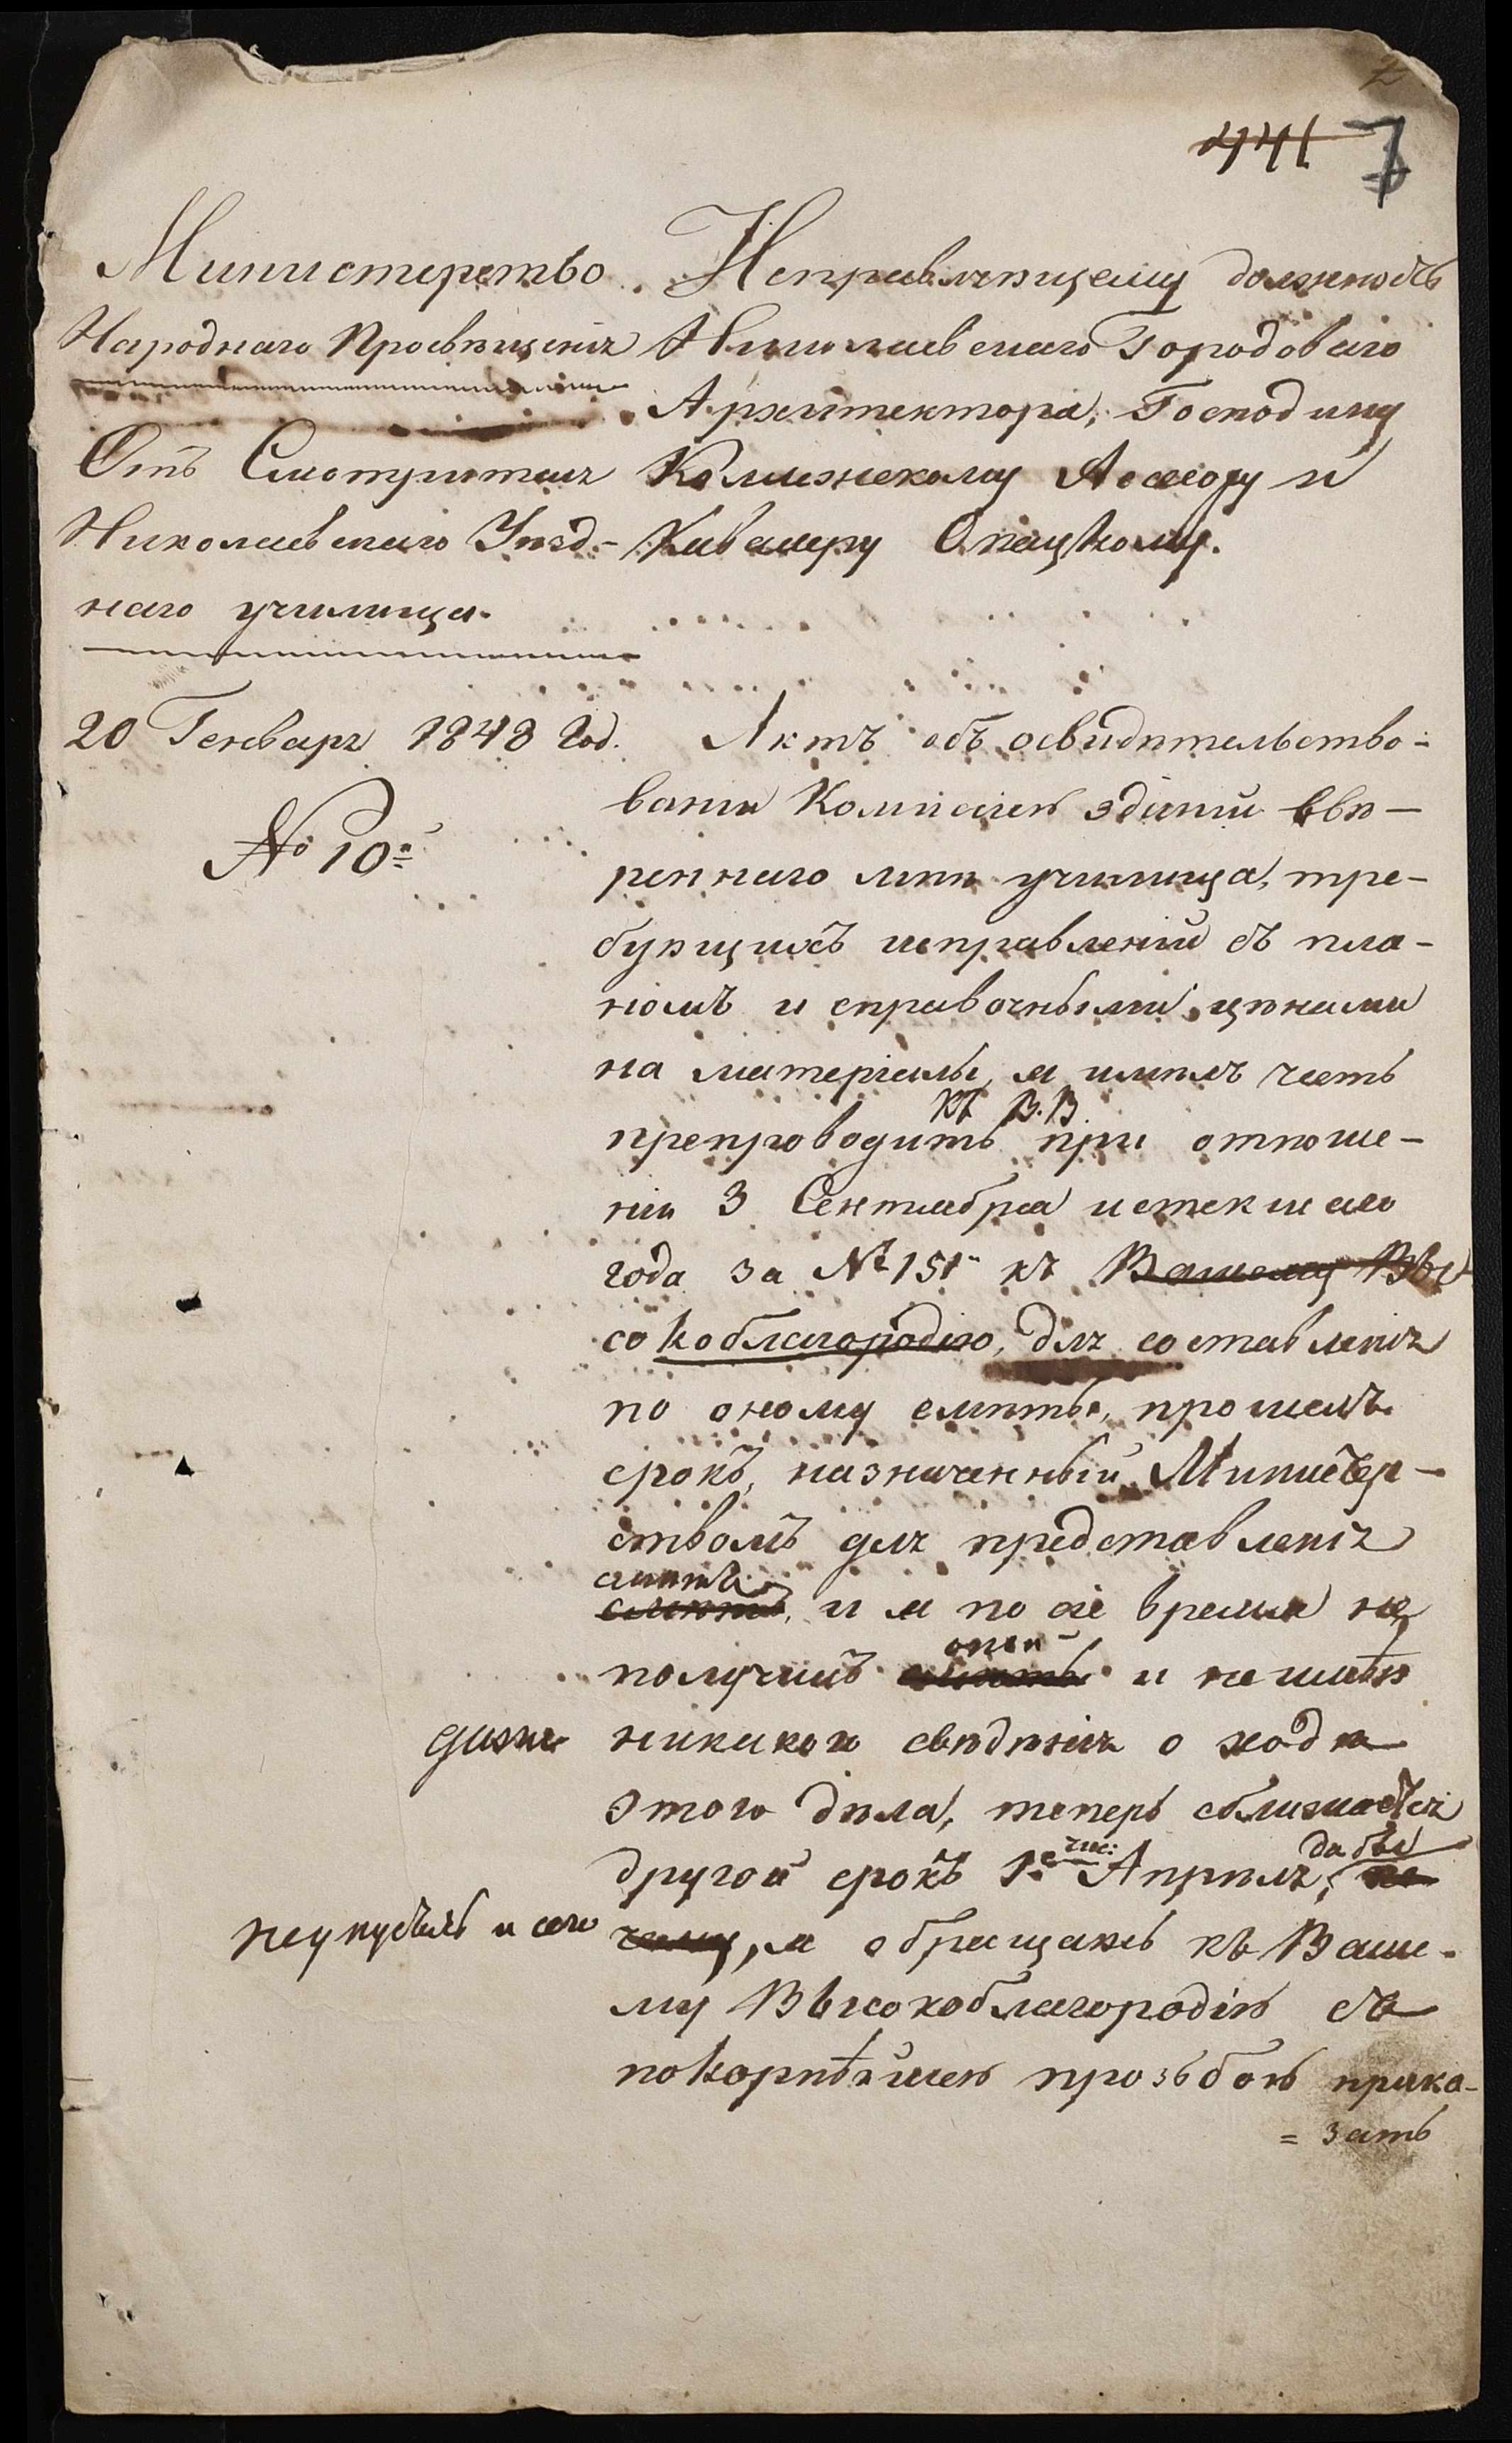 2
441 7
Министерство
Народнаго Просвѣщенія
Отъ Смотрителя
Николаевскаго Уѣзд-
наго училища.
20 Генваря 1848 год.
№ 10.
Исправляющему должность
Николаевскаго Городоваго
Архитектора, Господину
Коллежскому Асессору и
Кавалеру Опацкому.
Актъ объ освидѣтельство-
ваніи Коммисіею зданій ввѣ-
реннаго мнѣ училища, тре-
бующихъ исправленій съ пла-
номъ и справочными цѣнами
на матеріалы, я имѣлъ честь
къ В. В.
препроводить при отноше-
ніи 3 Сентября истекшаго
года за № 151 къ Вашему Вы-
сокоблагородію, для составленія
по оному смѣты, прошелъ
срокъ, назначенный Министер-
ствомъ для представленія
смѣты
смѣты, и я по сіе время не
оной
получилъ смѣты и не имѣю
даже никакого свѣдѣнія о ходѣ
этого дѣла, теперь сближается
чис: дабы
другой срокъ 1е Апрѣля, по
неупустить и сего чему, я обращаюсь къ Ваше-
му Высокоблагородію съ
покорнѣйшею прозьбою прика-
= зать